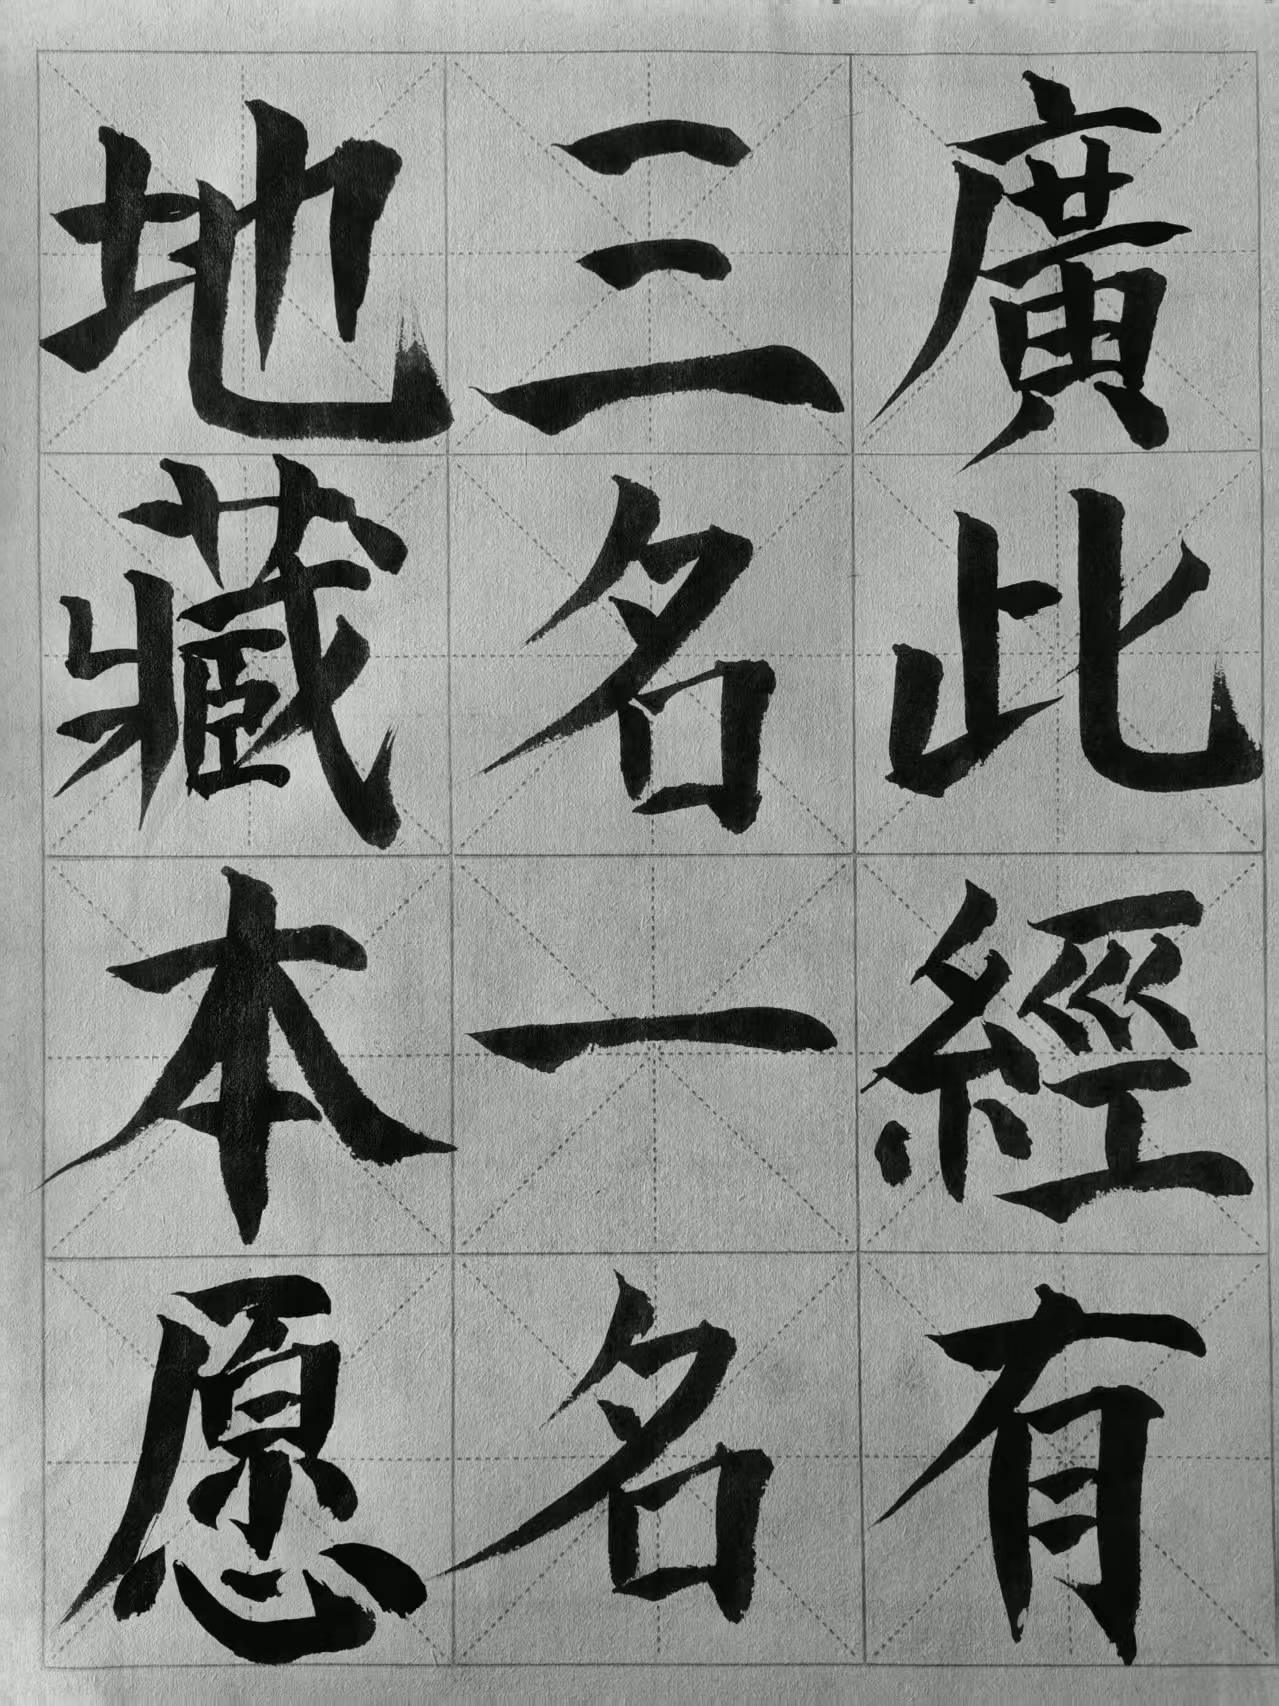 廣此經有
三名一名
地藏本愿